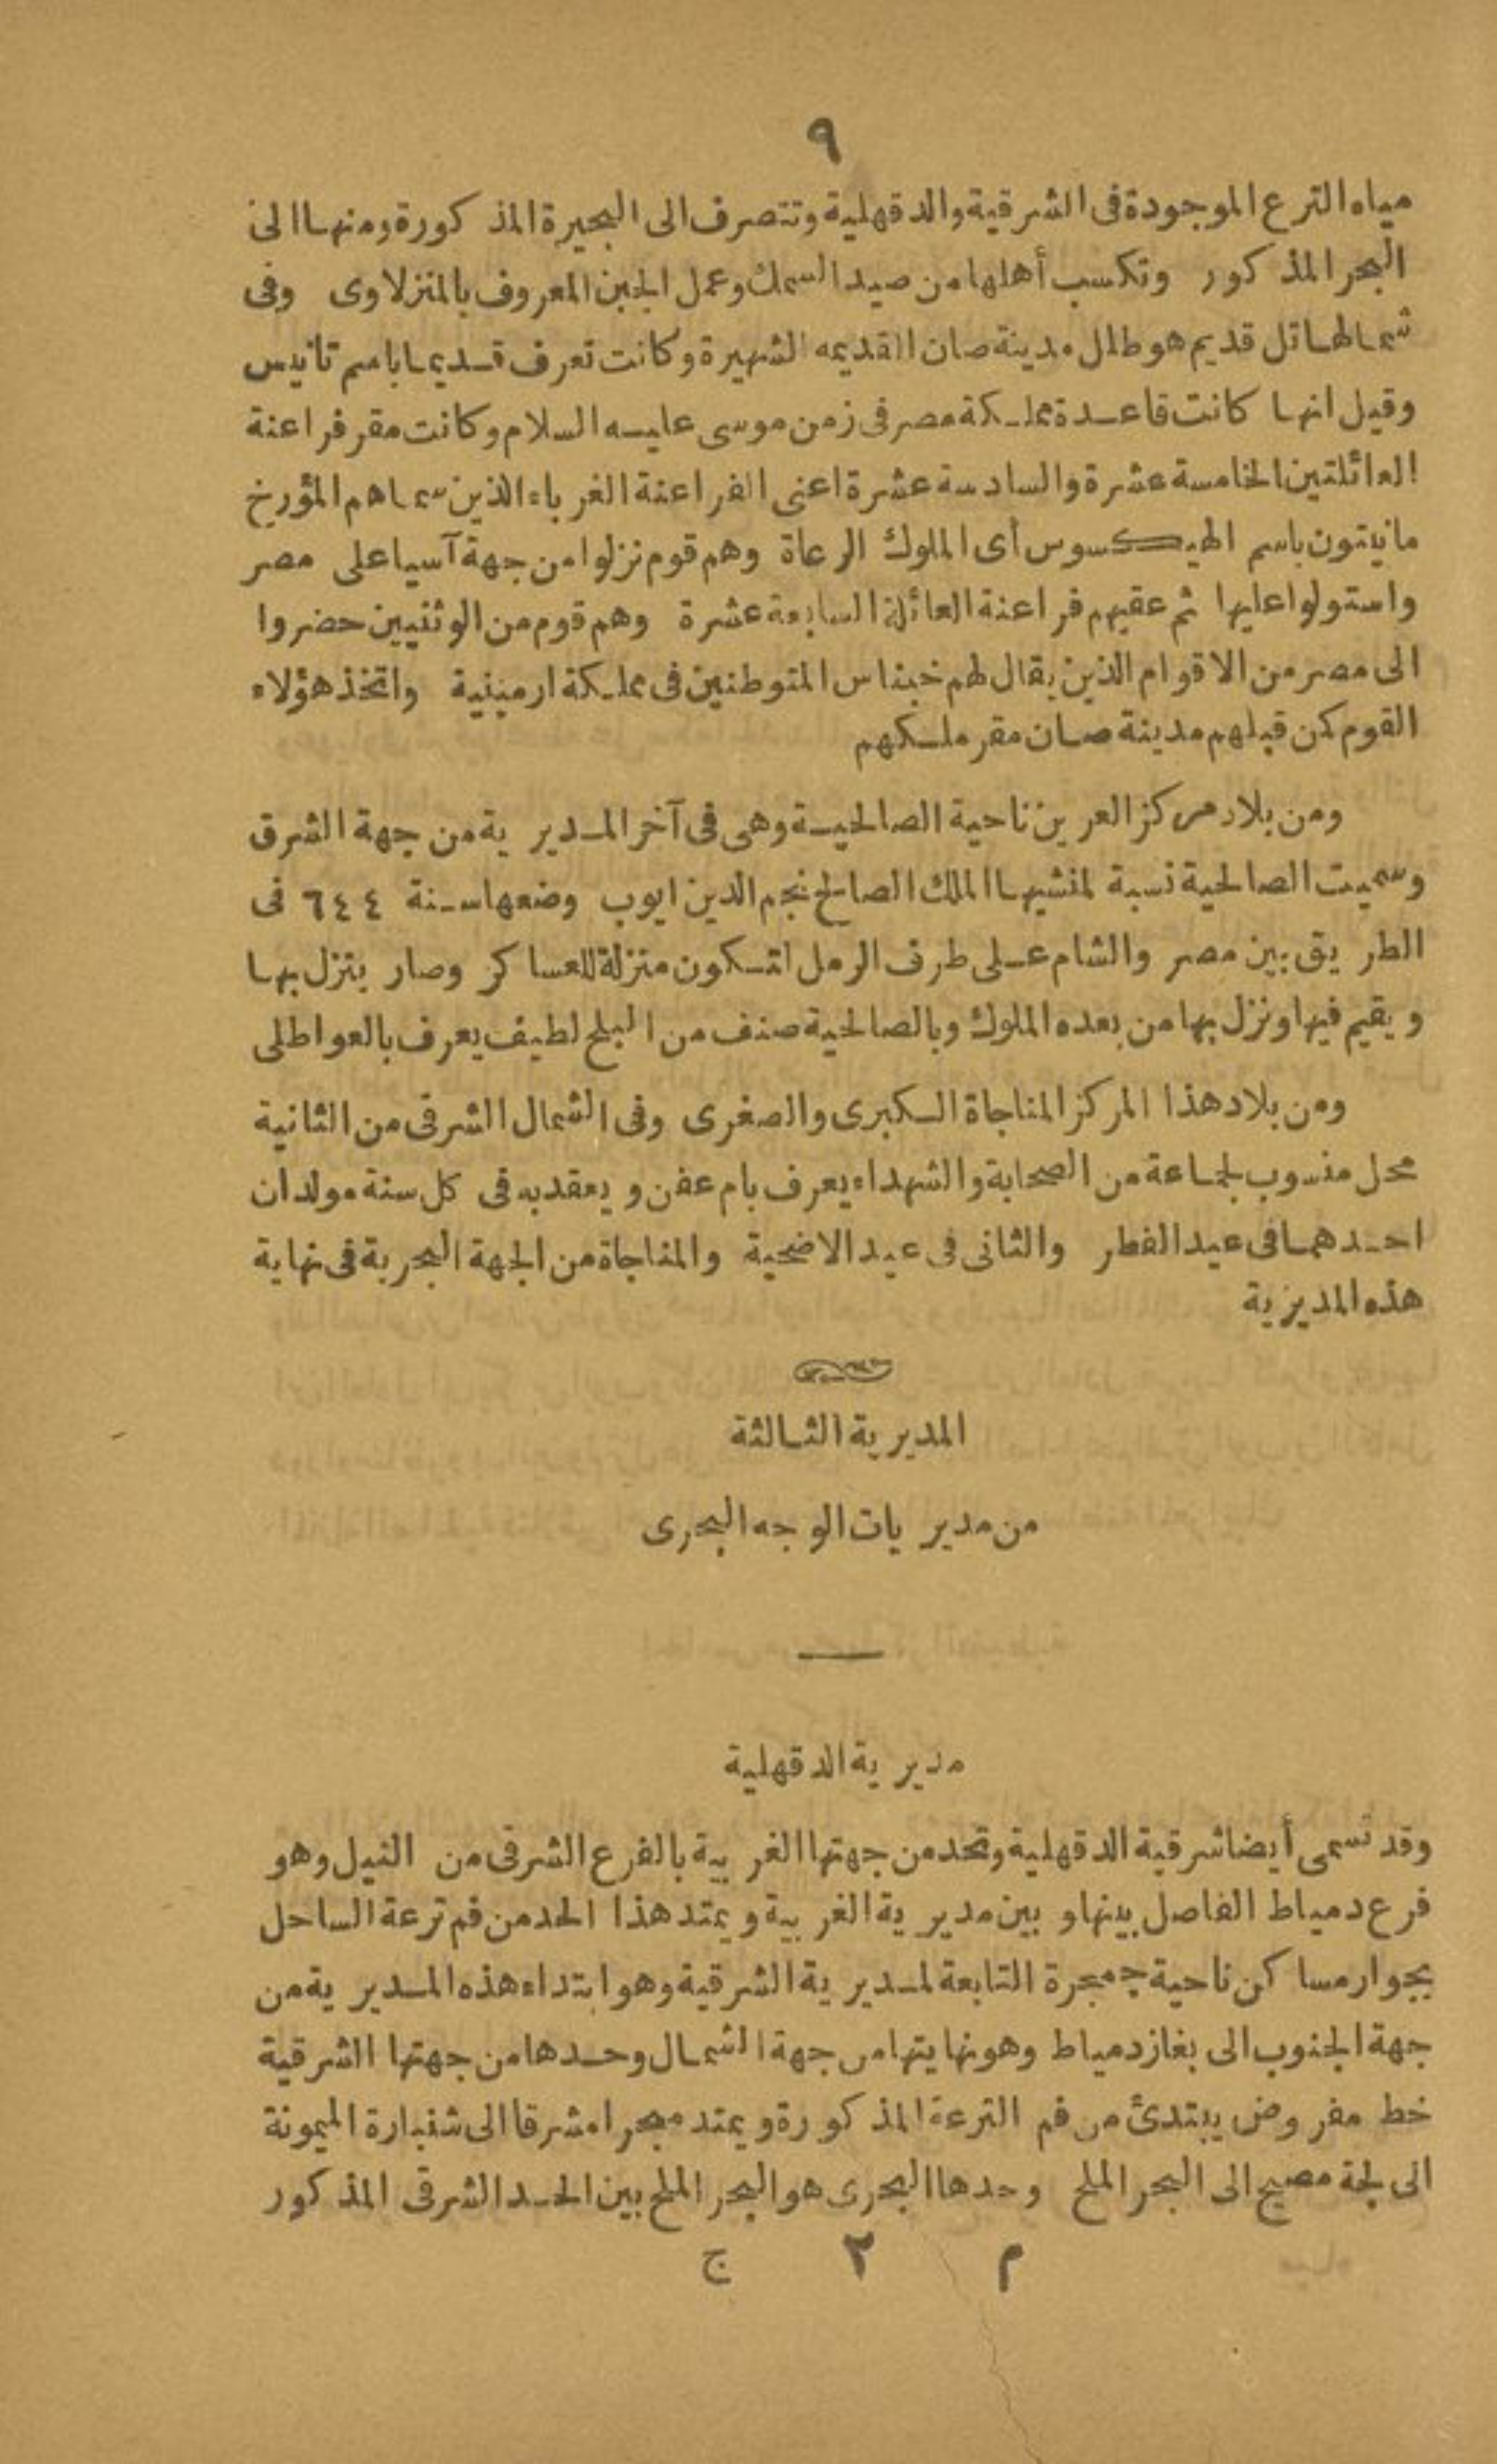 ٩
مياه الترع الموجودة فى الشرقية والدقهلية وتتصرف الى البحيرة المذكورة ومنها الى
البحر المذكور وتكسب أهلها من صيد السمك وعمل الجبن المعروف بالمنزلاوى وفى
شمالها تل قديم هو طال مدينة صان القديمه الشهيرة وكانت تعرف قديما باسم تانيس
وقيل انها كانت قاعدة مملكة مصر فى زمن موسى عليه السلام وكانت مقر فراعنة
العائلتين الخامسة عشرة والسادسة عشرة اعنى الفراعنة الغرباء الذين سماهم المؤرخ
مانيتون باسم الهيكسوس أى الملوك الرعاة وهم قوم نزلوا من جهة آسيا على مصر
واستولوا عليها ثم عقبهم فراعنة العائلة السابعة عشرة وهم قوم من الوثنيين حضروا
الى مصر من الاقوام الذين يقال لهم خيتاس المتوطنين فى مملكة ارمينية واتخذ هؤلاء
القوم كمن قبلهم مدينة صان مقر ملكهم
ومن بلاد مركز العرين ناحية الصالحية وهى فى آخر المديرية من جهة الشرق
وسميت الصالحية نسبة لمنشيها الملك الصالح نجم الدين ايوب وضعها سنة ٦٤٤ فى
الطريق بين مصر والشام على طرف الرمل لتكون منزلة للعساكر وصار ينزل بها
ويقيم فيها ونزل بها من بعده الملوك وبالصالحية صنف من البلح لطيف يعرف بالعواطلى
ومن بلاد هذا المركز المناجاة الكبرى والصغرى وفى الشمال الشرقى من الثانية
محل منسوب لجماعة من الصحابة والشهداء يعرف بام عفن ويعقد به فى كل سنة مولدان
احدهما فى عيد الفطر والثانى فى عيد الاضحية والمناجاة من الجهة البحرية فى نهاية
هذه المديرية
المديرية الثالثة
من مديريات الوجه البحرى
مديرية الدقهلية
وقد تسمى أيضا شرقية الدقهلية وتحد من جهتها الغربية بالفرع الشرقى من النيل وهو
فرع دمياط الفاصل بينها وبين مديرية الغربية ويمتد هذا الحد من فم ترعة الساحل
بجوار مساكن ناحية جمجرة التابعة لمديرية الشرقية وهو ابتداء هذه المديرية من
جهة الجنوب الى بغاز دمياط وهو نهايتها من جهة الشمال وحدها من جهتها الشرقية
خط مفروض يبتدئ من فم الترعة المذكورة ويمتد مبحرا مشرقا الى شنبارة الميمونة
الى لجة مصبح الى البحر الملح وحدها البحرى هو البحر الملح بين الحد الشرقى المذكور
م ٢ ج